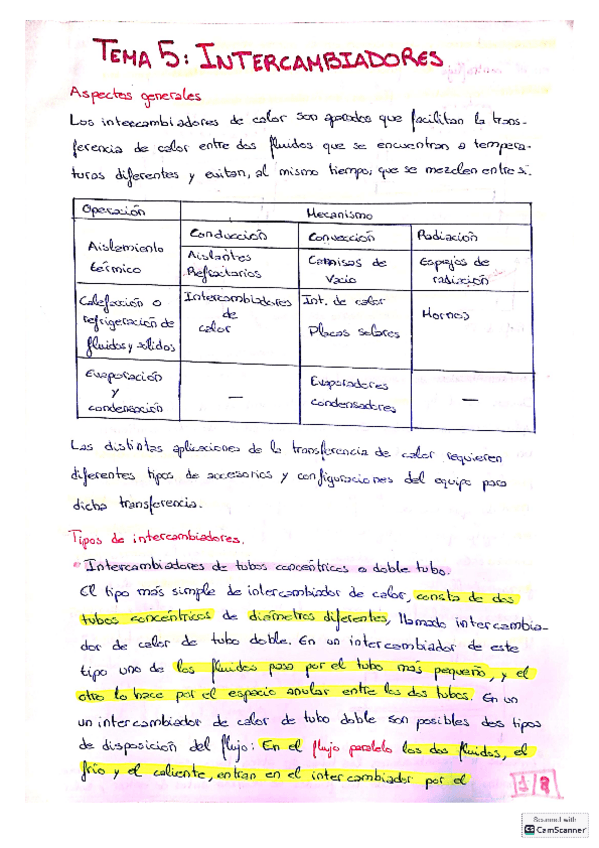 TEMA 5: INTERCAMBIADORES
Aspectos generales
Los intercambiadores de calor son aparatos que facilitan la trans-
ferencia de calor entre dos fluidos que se encuentran a tempera-
turas diferentes y evitan, al mismo tiempo, que se mezclen entre sí.
Operación Mecanismo
Conducción Convección Radiación
Aislamiento térmico Aislantes Refractarios Camisas de Vacío Espejos de radiación
Calefacción o refrigeración de fluidos y sólidos Intercambiadores de calor Int. de calor Placas solares Hornos
Evaporación y condensación — Evaporadores condensadores —
Las distintas aplicaciones de la transferencia de calor requieren
diferentes tipos de accesorios y configuraciones del equipo para
dicha transferencia.
Tipos de intercambiadores.
Intercambiadores de tubos concéntricos o doble tubo.
El tipo más simple de intercambiador de calor, consta de dos
tubos concéntricos de diámetros diferentes, llamado intercambia-
dor de calor de tubo doble. En un intercambiador de este
tipo uno de los fluidos pasa por el tubo más pequeño, y el
otro lo hace por el espacio anular entre los dos tubos. En un
un intercambiador de calor de tubo doble son posibles dos tipos
de disposición del flujo: En el flujo paralelo los dos fluidos, el
frío y el caliente, entran en el intercambiador por el
1/8
Scanned with
CS CamScanner